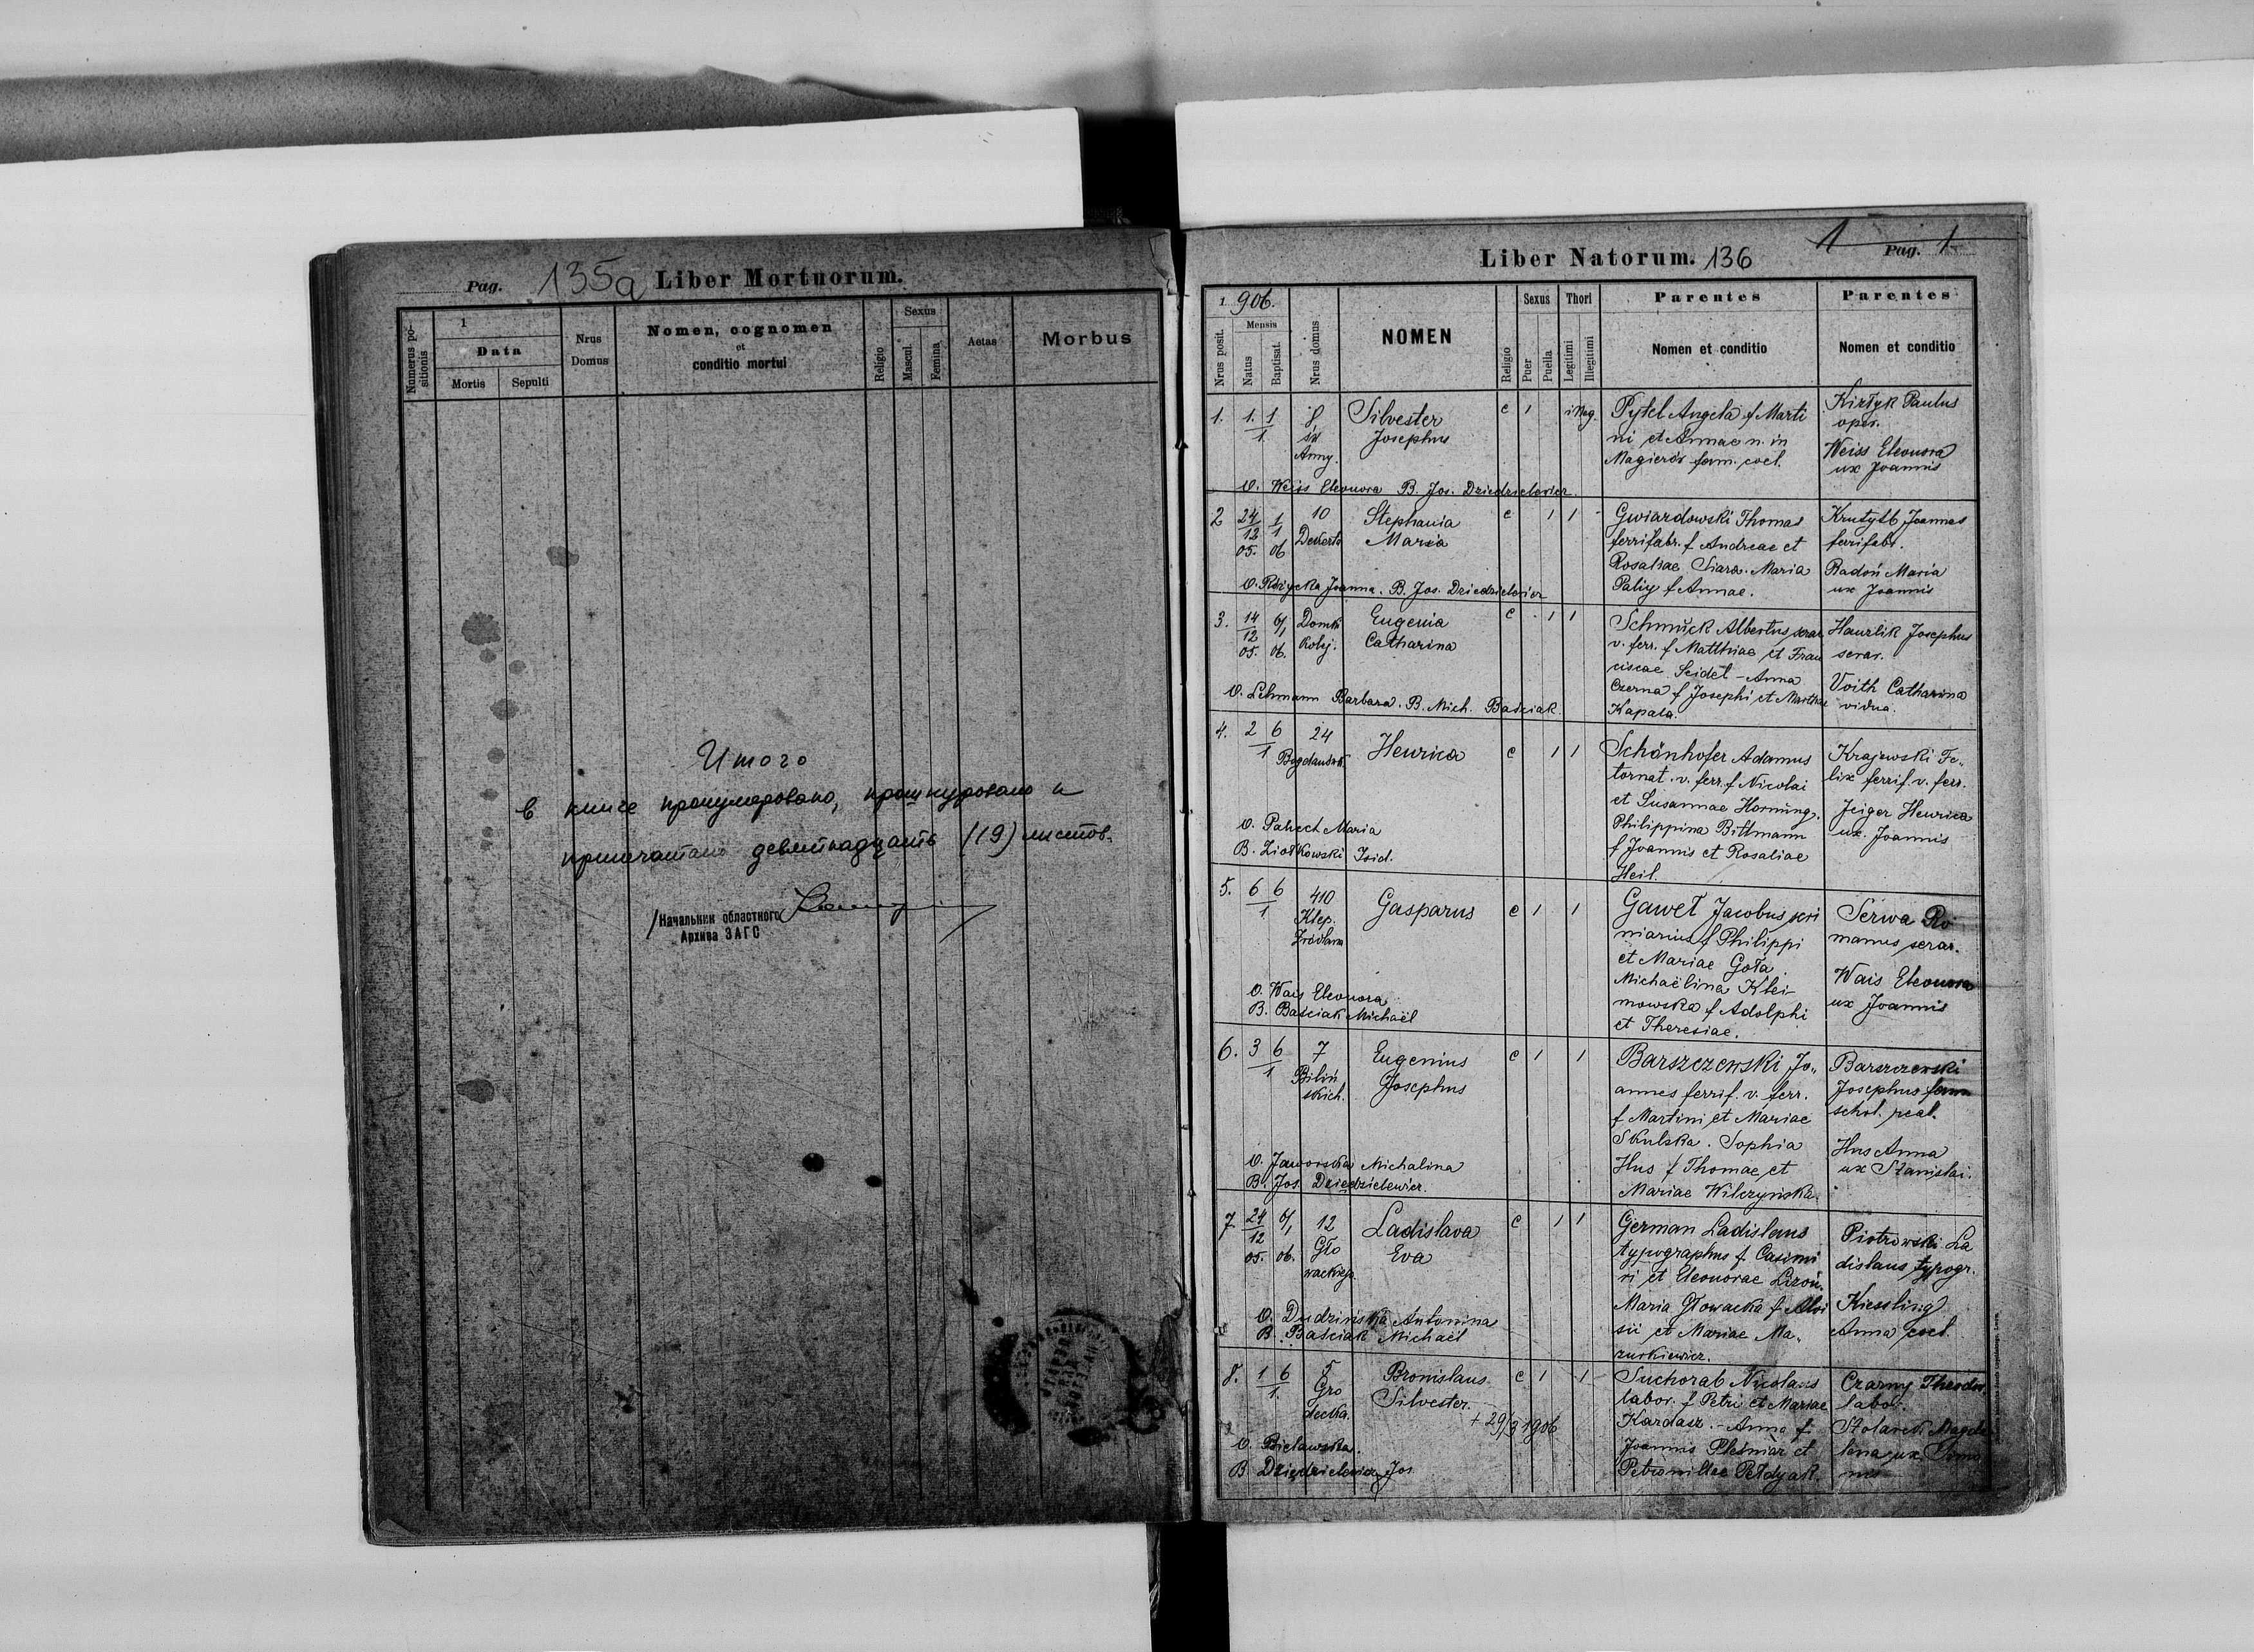 Pag. 135a Liber Mortuorum.
Numerus positionis
1
Data
Mortis Sepulti
Nrus Domus
Nomen, cognomen
et
conditio mortui
Religio
Sexus
Mascul. Femina
Aetas
Morbus
Итого
в книге пронумеровано, прошнуровано и
припечатано девятнадцать (19) листов.
Начальник областного
Архива ЗАГС
Liber Natorum. 136
1 Pag. 1
1 906.
Nrus posit.
Mensis
Natus Baptisat.
Nrus domus
NOMEN
Religio
Sexus
Puer Puella
Thori
Legitimi Illegitimi
Parentes
Nomen et conditio
Parentes
Nomen et conditio
1. 1. 1/1 8 św Anny. Silvester Josephus c 1 illeg.
Pytel Angela f Marti
ni et Annae n. in
Magierów fam. coel.
Kirtyk Paulus
oper.
Weiss Eleonora
ux Joannis
O. Weiss Eleonora B. Jos. Dziedzielewicz.
2 24/12 05. 1/1 06 10 Dekerta Stephania Maria c 1 1
Gwiazdowski Thomas
ferrifabr. f Andreae et
Rosaliae Siara. Maria
Paliy f Annae.
Joannes
ferrifabr.
Radoń Maria
ux Joannis
O. Rożycka Joanna. B. Jos. Dziedzielewicz
3. 14/12 05. 6/1 06. Domki Kolej. Eugenia Catharina c 1 1
Schmuck Albertus serar.
v. ferr. f Matthiae et Fran
ciscae Seidel - Anna
Czerna f Josephi et Marthae
Kapala.
Hauzlik Josephus
serar.
Voith Catharina
vidua.
O. Lehmann Barbara. B. Mich. Baściak.
4. 2 6/1 24 Henrica c 1 1
Schönhofer Adamus
tornat. v. ferr. f Nicolai
et Susannae Hornung.
Philippina Bittmann
f Joannis et Rosaliae
Heil.
Krajewski Fe„
lix ferrif. v. ferr.
Jeiger Henrica
ux. Joannis
O. Maria
B. Ziołkowski Isid.
5. 6 6/1 410 Klep. Gasparus c 1 1
Gaweł Jacobus scri
niarius f Philippi
et Mariae Goła.
Michaëlina Klei-
mowska f Adolphi
et Theresiae.
Serwa Ro
manus serar.
Wais Eleonora
ux Joannis
O. Wais Eleonora
B. Baściak Michaël
6. 3 6/1 7 Biliń skich. Eugenius Josephus c 1 1
Barszczewski Jo„
annes ferrif. v. ferr.
f Martini et Mariae
Skulska. Sophia
Hus f Thomae et
Mariae Wilczyńska.
Barszczewski
Josephus fam
schol. real.
Hus Anna
ux Stanislai.
O. Jaworska Michalina
B. Jos. Dziedzielewicz.
7 24/12 05. 6/1 06. 12 Gło wackiego Ladislava Eva c 1 1
German Ladislaus
typographus f. Casimi
ri et Eleonorae Lizoń.
Maria Głowacka f Aloi
sii et Mariae Ma„
zurkiewicz.
Piotrowski La
dislaus typogr.
Kiessling
Anna coel.
O. Dudzińska Antonina
B. Baściak Michaël
8. 1 6/1. 5 Gro decka. Bronislaus Silvester. c 1 1
+ 29/3 1906
Suchorab Nicolaus
labor. f Petri et Mariae
Kardasz. - Anna f
Joannis Pleśniar et
Petronillae Pełdyak.
Czarny Theodor
labor.
Magda
lena ux Simo
nis
O. Bielawska.
B Dziedzielewicz Jos